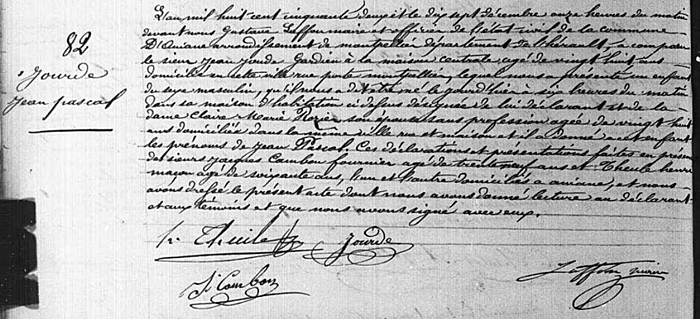 82
Jourde
Jean pascal
L'an mil huit cent cinquante deux et le dix sept décembre onze heures du matin
devant nous Gustave Laffon maire et officier de l'état civil de la commune
D'Aniane arrondissement de montpellier département de l'hérault, a comparu
le sieur Jean Jourde Gardien à la maison centrale agé de vingt huit ans
domicilié en cette ville rue porte montpellier, lequel nous a présenté un enfant
du sexe masculin, qu'il nous a dit être né le jour d'hier à six heures du matin
dans sa maison d'habitation ci dessus désignée de lui déclarant et de la
dame Claire Marie Rozier son épouse sans profession agée de vingt huit
ans domiciliés dans la même ville rue et maison et il a donné au dit enfant
les prénoms de Jean Pascal. Ces déclarations et présentations faites en présence
de sieurs Jacques Cambon fournier agé de trente neuf ans et Theule henri
maçon agé de soixante ans, l'un et l'autre domiciliés a aniane, et nous
avons dressé le présent acte dont nous avons donné lecture au déclarant
et aux témoins et que nous avons signé avec eux.
h. Theule Jourde
J. Cambon
Laffon